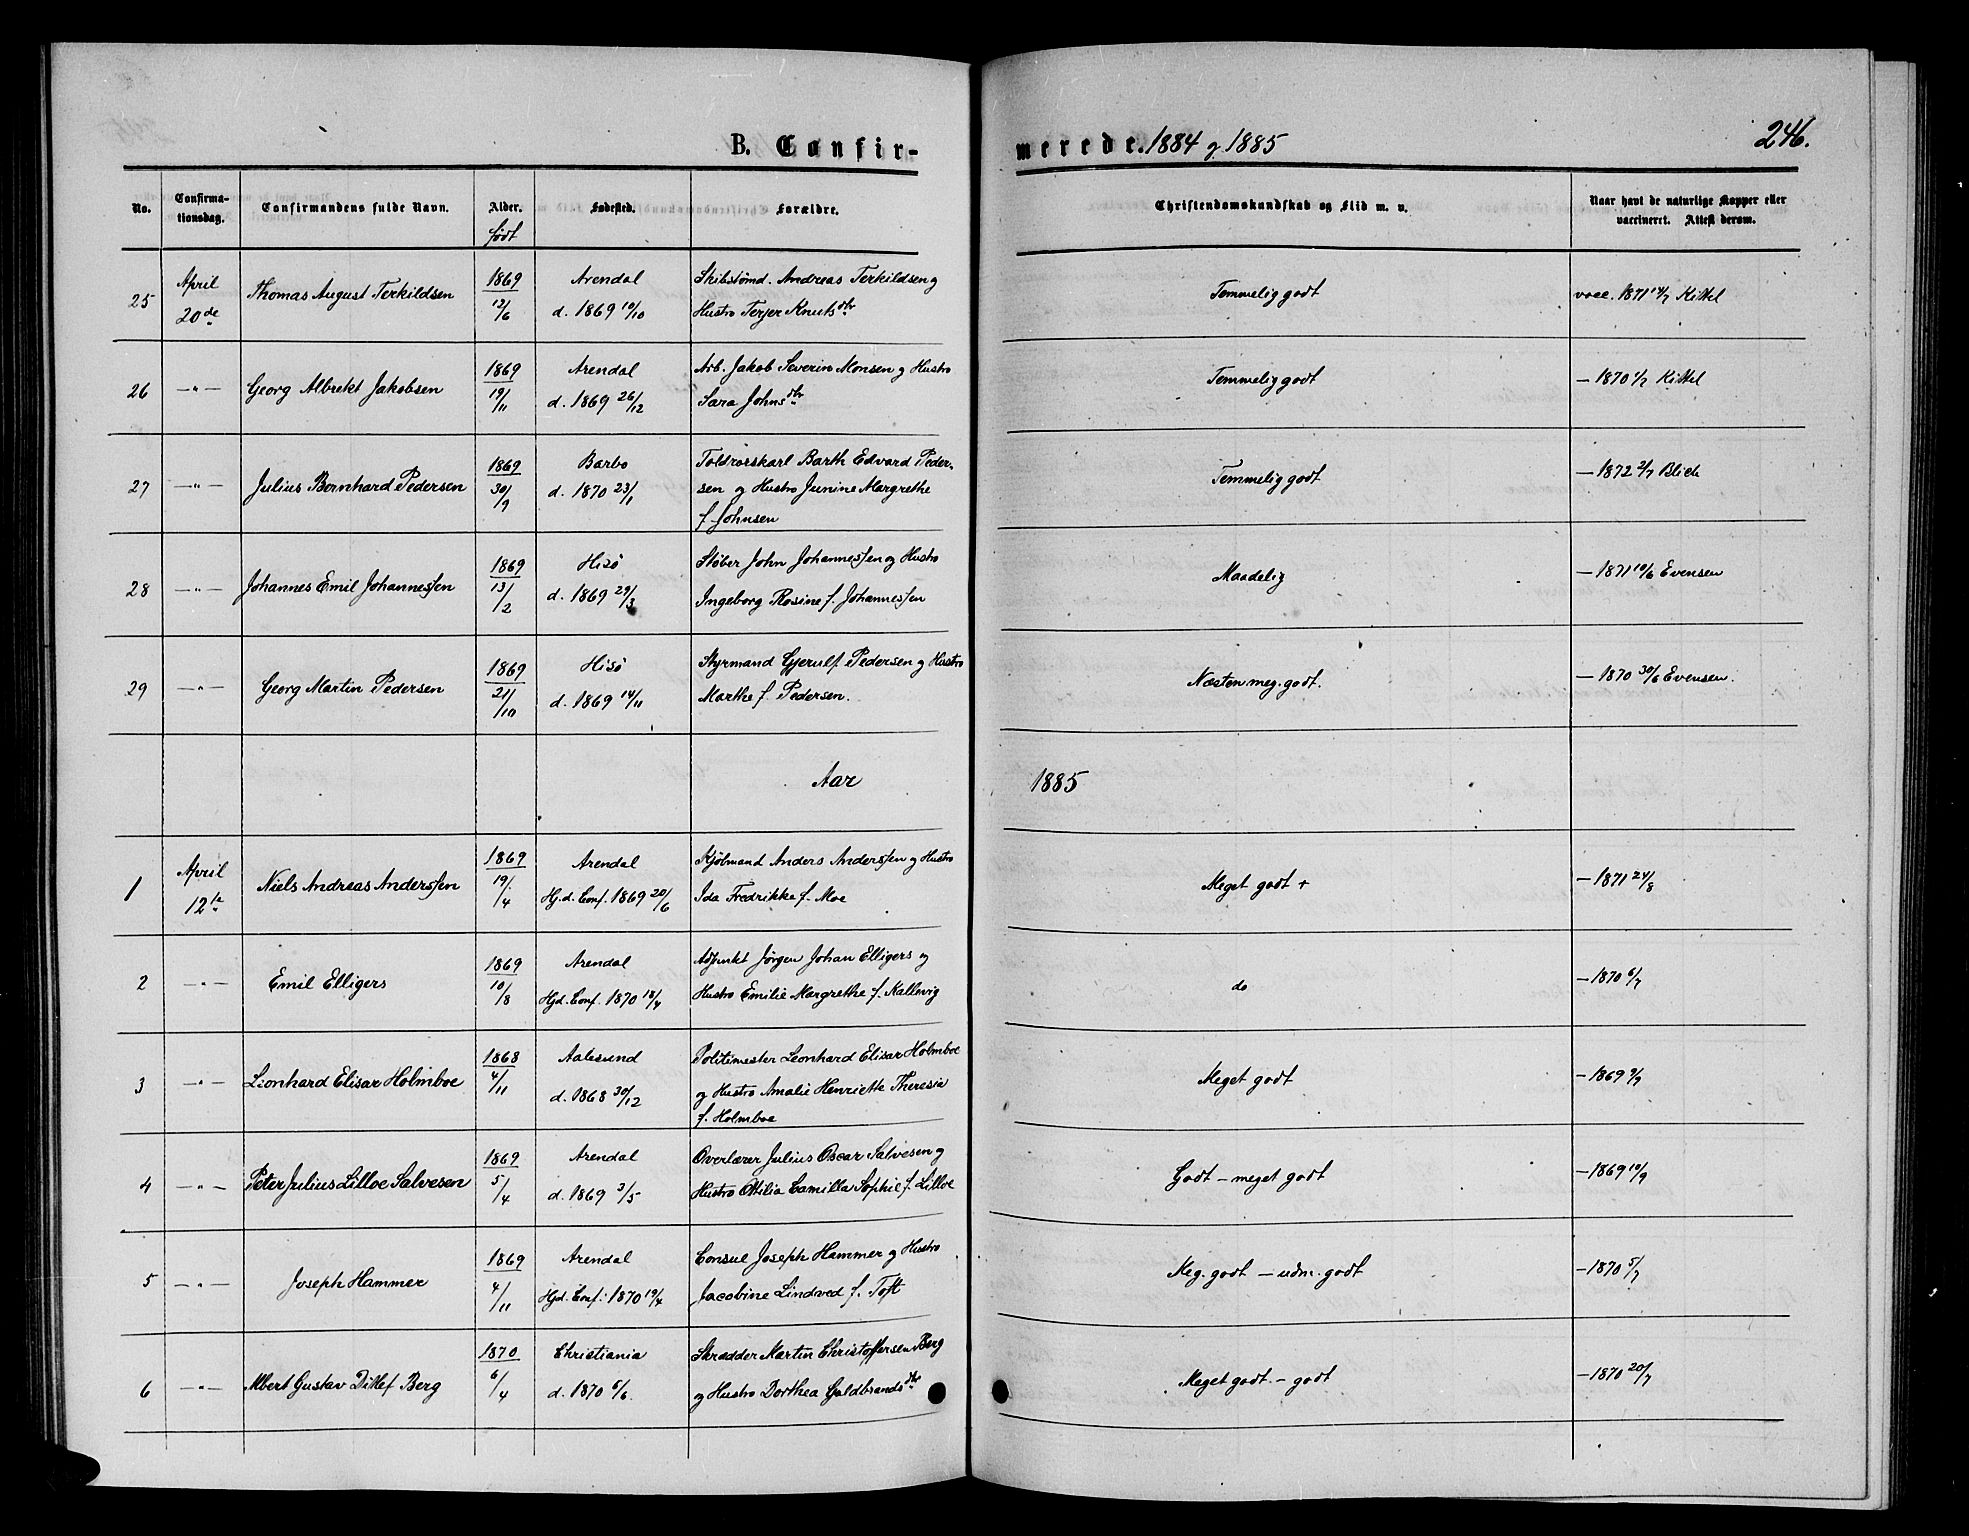 B. Confir-
merede. 1884 og 1885
246.
No.
Confirma-
tionsdag.
Confirmandens fulde Navn.
Alder.
født
Fødested.
Forældre.
Christendomskundskab og Flid m. v.
Naar havt de naturlige Kopper eller
vaccineret. Attest derom.
25 April 20de Thomas August Terkildsen 1869 12/6 Arendal d. 1869 10/10
Skibstømd. Andreas Terkildsen og
Hustro Terjer Knutsdtr
Temmelig godt
vacc. 1871 14/7 Kittel
26 —"— Georg Albrekt Jakobsen 1869 19/11 Arendal d. 1869 26/12
Arb. Jakob Severin Monsen og Hustro
Sara Johnsdtr
Temmelig godt
— 1870 1/7 Kittel
27 —"— Julius Bernhard Pedersen 1869 30/9 Barbo d. 1870 23/1
Toldrorskarl Barth Edvard Peder-
sen og Hustro Junine Margrethe
f. Johnsen
Temmelig godt
— 1872 2/7 Blich
28 —"— Johannes Emil Johannessen 1869 13/2 Hisø d. 1869 29/3
Støber John Johannessen og Hustro
Ingeborg Rosine f. Johannessen
Maadelig
— 1871 10/6 Evensen
29 —"— Georg Martin Pedersen 1869 21/10 Hisø d. 1869 14/11
Styrmand Gjerulf Pedersen og Hustro
Marthe f. Pedersen.
Næsten meg. godt.
— 1870 30/6 Evensen.
Aar 1885
1 April 12te Niels Andreas Anderssen 1869 19/4 Arendal Hj.d. Conf. 1869 20/6
Kjøbmand Anders Anderssen og Hustro
Ida Fredrikke f. Moe
Meget godt +
— 1871 24/8
2 —"— Emil Elligers 1869 10/8 Arendal Hjd. Conf. 1870 18/4
Adjunkt Jørgen Johan Elligers og
Hustro Emilie Margrethe f. Kallevig
do
— 1870 6/7
3 —"— Leonhard Elisar Holmboe 1868 4/11 Aalesund d. 1868 30/12
Politimester Leonhard Elisar Holmboe
og Hustro Amalie Henriette Theresia
f. Holmboe
Meget godt
— 1869 9/9
4 —"— Peter Julius Lilloe Salvesen 1869 5/4 Arendal d. 1869 3/5
Overlærer Julius Oscar Salvesen og
Hustro Ottilia Camilla Sophie f. Lilloe
Godt – meget godt
— 1869 10/9
5 —"— Joseph Hammer 1869 4/11 Arendal Hjd. Conf. 1870 19/4
Consul Joseph Hammer og Hustro
Jacobine Lindved f. Toft
Meg. godt – udm. godt
— 1870 5/7
6 —"— Albert Gustav Ditlef Berg 1870 6/4 Christiania d. 1870 6/6.
Skrædder Martin Christoffersen Berg
og Hustro Dorthea Guldbrandsdtr
Meget godt. – godt
— 1870 20/7